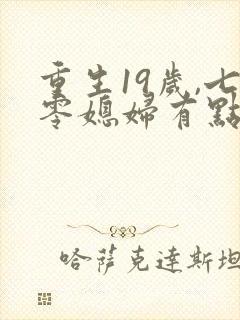 重生19歲,七
零媳婦有點
哈薩克達斯坦